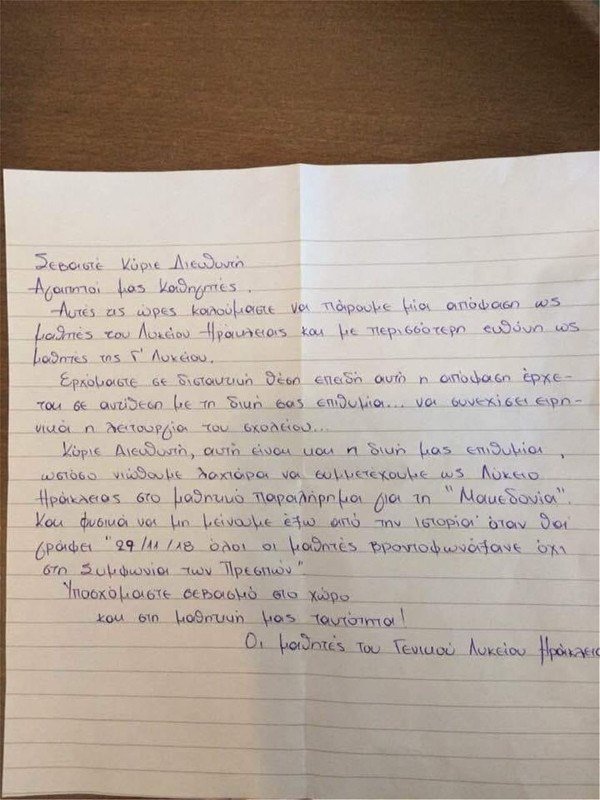 Σεβαστέ Κύριε Διευθυντή
Αγαπητοί μας Καθηγητές.
Αυτές τις ώρες καλούμαστε να πάρουμε μία απόφαση ως
μαθητές του Λυκείου Ηράκλειας και με περισσότερη ευθύνη ως
μαθητές της Γ' Λυκείου.
Ερχόμαστε σε δισταχτική θέση επειδή αυτή η απόφαση έρχε-
ται σε αντίθεση με τη δική σας επιθυμία... να συνεχίσει ειρη-
νικά η λειτουργία του σχολείου...
Κύριε Διευθυντή, αυτή είναι και η δική μας επιθυμία,
ωστόσο νιώθουμε λαχτάρα να συμμετέχουμε ως Λύκειο
Ηράκλειας στο μαθητικό παραλήρημα για τη "Μακεδονία".
Και φυσικά να μη μείνουμε έξω από την Ιστορία όταν θα
γράφει "29/11/18 όλοι οι μαθητές βροντοφωνάξανε όχι
στη Συμφωνία των Πρεσπών"
Υποσχόμαστε σεβασμό στο χώρο
και στη μαθητική μας ταυτότητα!
Οι μαθητές του Γενικού Λυκείου Ηράκλεια